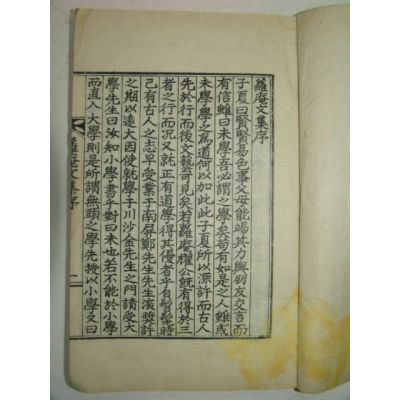 蘿庵文集序
子夏曰賢賢易色事父母能竭其力與朋友交言而
有信雖曰未學吾必謂之學矣苟有如是之人雖或
未學學之爲道何以加此此子夏所以深許而古人
先於行而後文藝可見矣若蘿庵權公旣有得於三
者之行而況又就正有道學得其優者乎自髫髮時
已有古人之志早受業于南屛鄭先生先生深奬許
之期以遠大因使就學于川沙金先生之門請受大
學先生曰汝知小學書乎對曰未也若不能於小學
而直入大學則是所謂無頭之學先授以小學又曰
蘿庵文集序
一